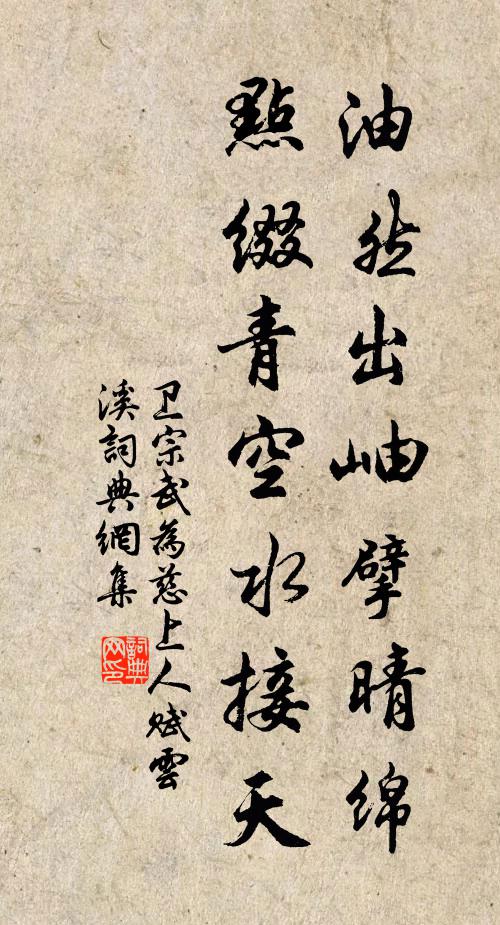 油然出岫擘晴绵
點綴青空水接天
卫宗武為慈上人赋雲
溪詞典網集
詞典网印